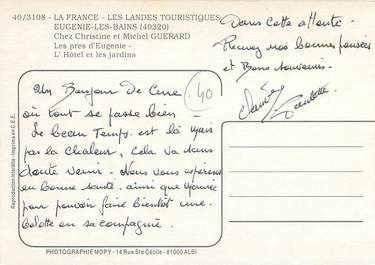 40/3108 - LA FRANCE - LES LANDES TOURISTIQUES
EUGENIE-LES-BAINS (40320)
Chez Christine et Michel GUERARD
Les pres d'Eugenie -
L' Hôtel et les jardins
Dans cette attente.
Recevez nos bonnes pensées
et Bons souvenirs.
Paulette
40
Un Bonjour de Cure
où tout se passe bien -
Le beau Temps. est là mais
pas la chaleur, cela va sans
doute venir. Nous vous espérons
en bonne santé. ainsi que
pour pouvoir faire bientôt une
belotte en sa compagnie.
Reproduction interdite - Imprimé en C.E.E.
PHOTOGRAPHIE MOPY - 14 Rue Ste Cécile - 81000 ALBI